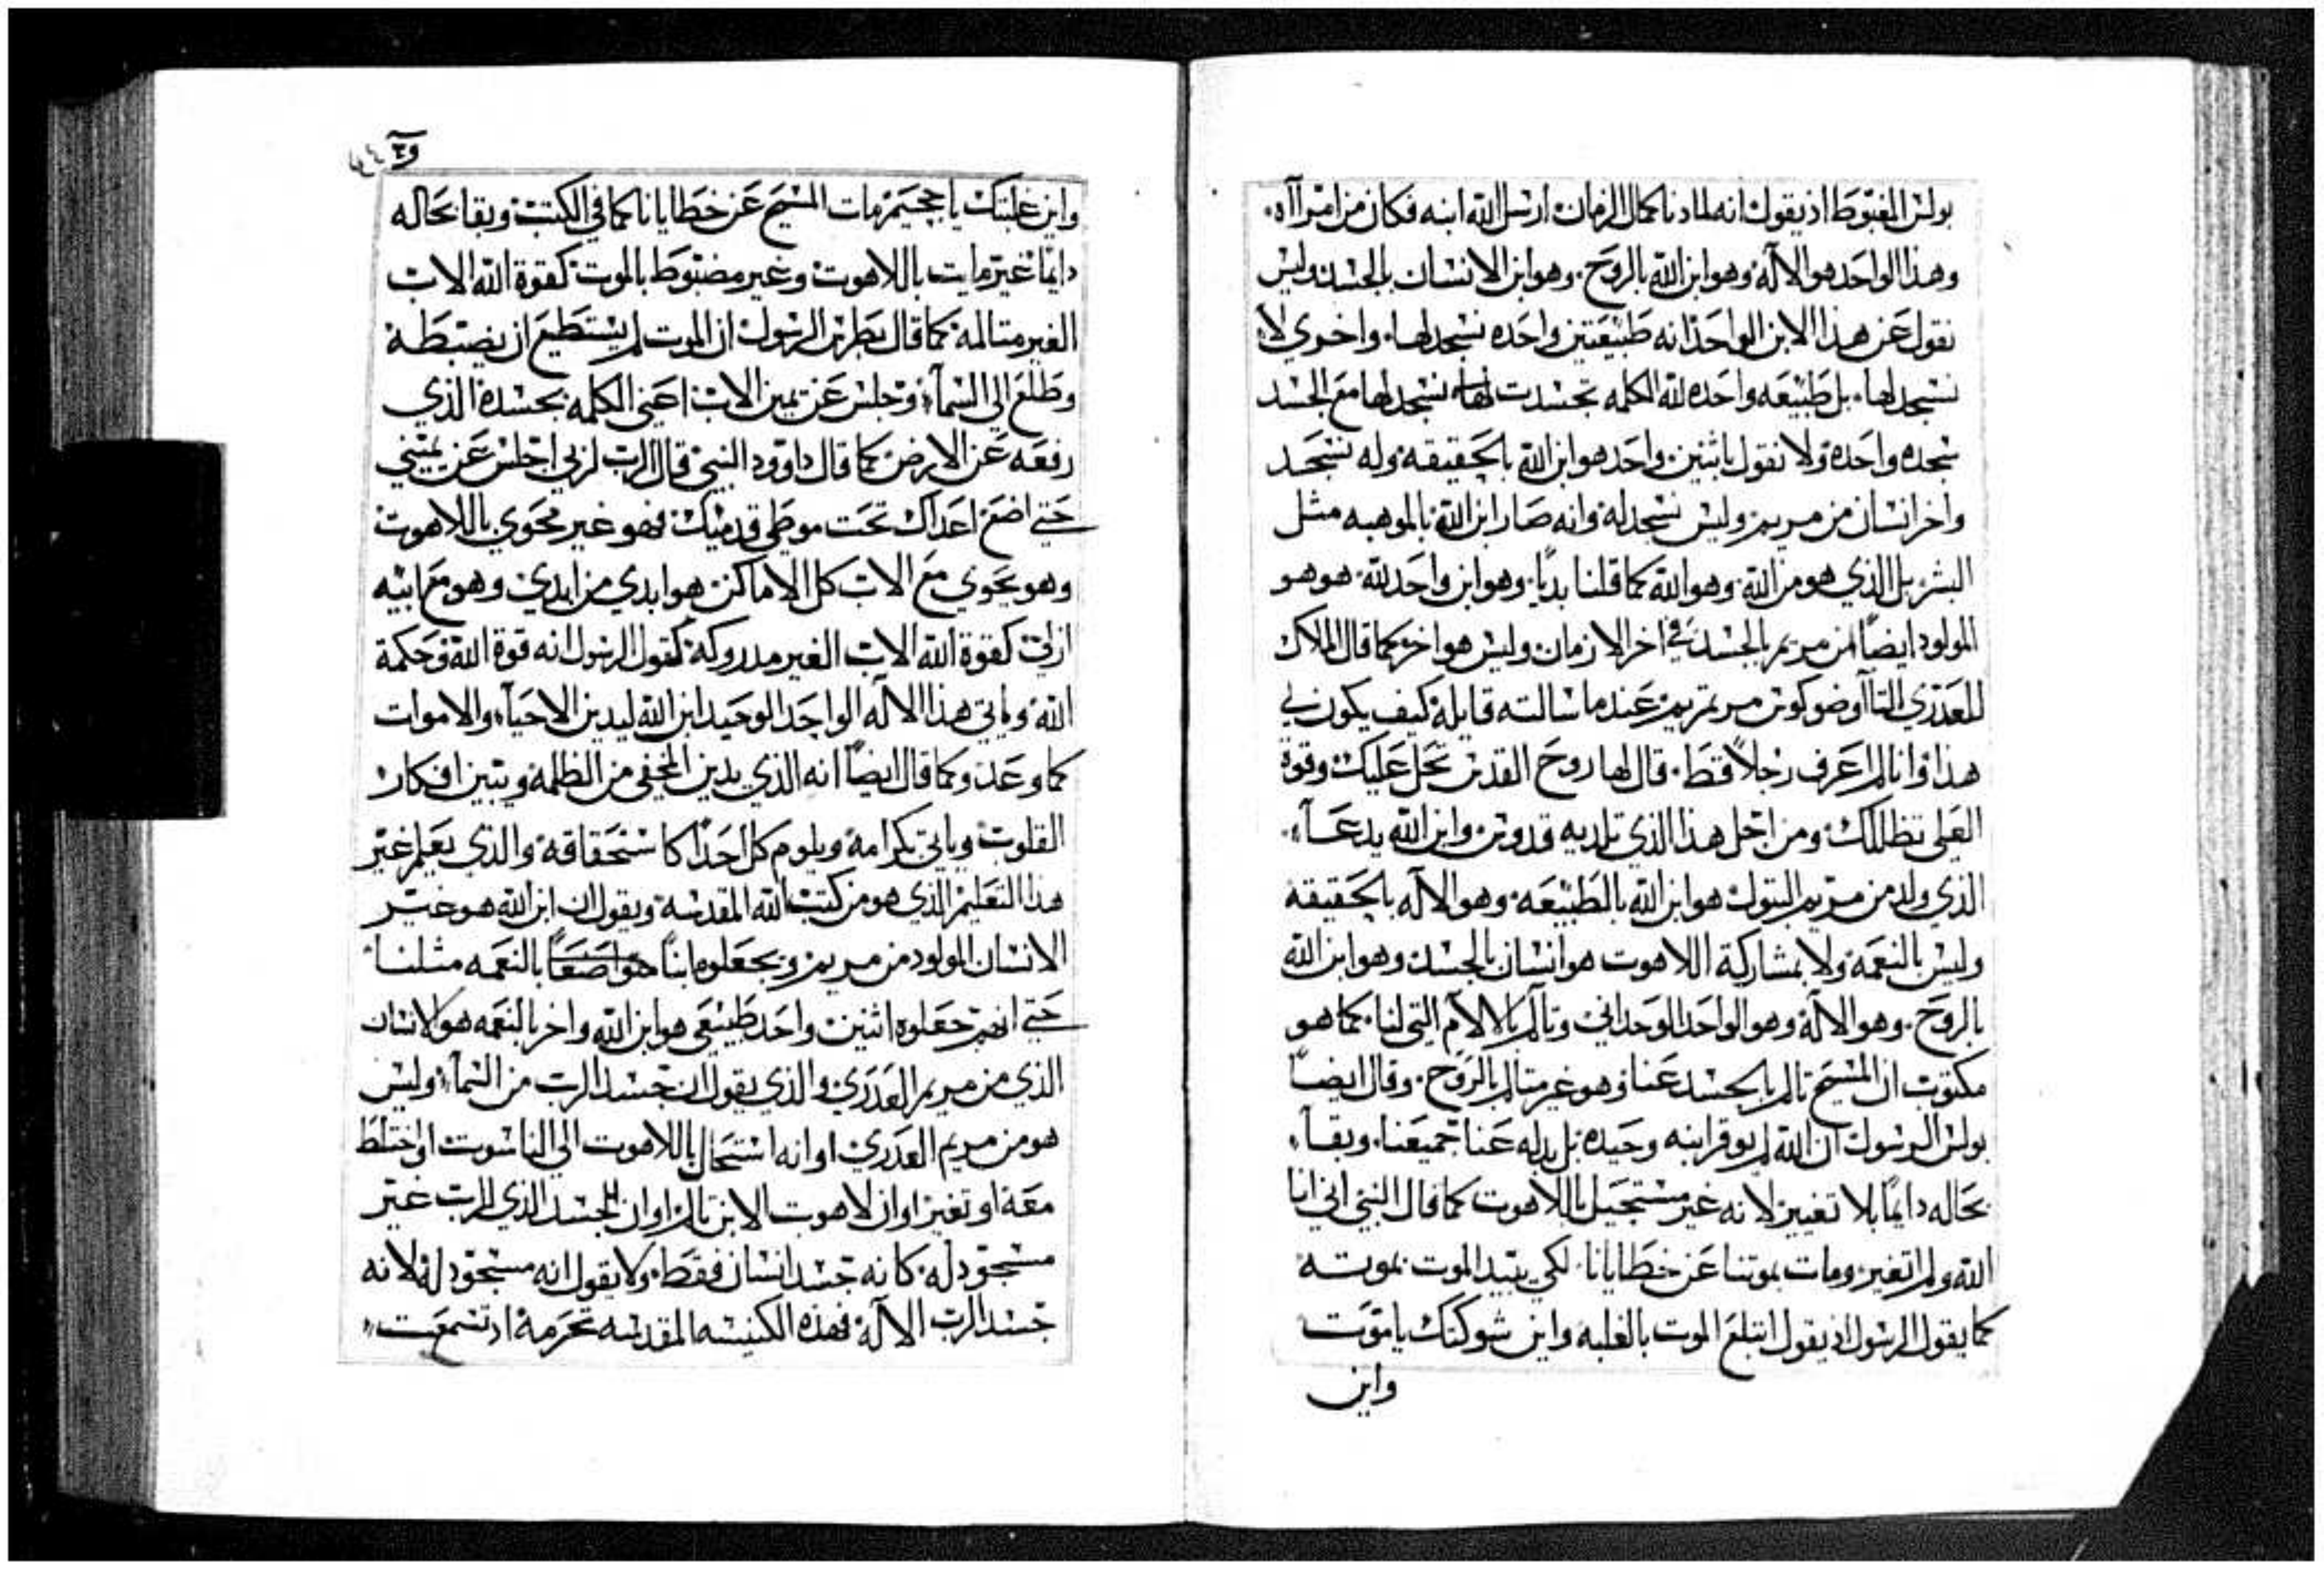 بولس المغبوط اذ يقول انه لما دنا كمال الزمان ارسل الله ابنه فكان من امرآاه.
وهذا الواحد هو الالآه وهو ابن الله بالروح. وهو ابن الانسان بالجسد وليس
نقول عن هذا الابن الواحد انه طبيعتين واحده نسجد لها. واخري لا
نسجد لها. بل طبيعه واحده لله الكلمه تجسدت نسجد لها مع الجسد
سجده واحده ولا نقول باثنين واحد هو ابن الله بالحقيقه وله نسجد
واخر انسان من مريم وليس نسجد له وانه صار ابن الله بالموهبه مثل
البشر بل الذي هو من الله وهو الله كما قلنا بديًا. وهو ابن واحد لله. هو هو
المولود ايضًا من مريم بالجسد في اخر الازمان وليس هو اخر كما قال الملاك
للعذري التاآوضوكوس مريم عند ما سالته قايلة كيف يكون لي
هذا وانا لم اعرف رجلاً قط. قال لها روح القدس تحل عليك وقوة
العلي تظللك ومن اجل هذا الذي تلديه قدوس وابن الله يدعآ.
الذي ولد من مريم البتول هو ابن الله بالطبيعه. وهو الالآه بالحقيقه
وليس بالنعمه ولا بمشاركة اللاهوت هو انسان بالجسد وهو ابن الله
بالروح. وهو الالآه وهو الواحد الوحداني وتآلم بالالآم التي لنا. كما هو
مكتوب ان المسيح تالم بالجسد عنا وهو غير متالم بالروح. وقال ايضًا
بولس الرسول ان الله لم يوفر ابنه وحيده بل بدله عنا جميعنا. وبقآ
بحاله دايمًا بلا تغيير لانه غير مستحيل باللاهوت كما قال النبي اني انا
الله ولم اتغير ومات بموتنا عن خطايانا. لكي يبيد الموت بموته
كما يقول الرسول اذ يقول ابتلع الموت بالغلبه واين شوكتك يا موت
واين
واين غلبتك يا جحيم مات المسيح عن خطايانا كما في الكتب وبقا بحاله
دايمًا غير مايت باللاهوت وغير مضبوط بالموت كقوة الله الاب
الغير متالمه كما قال بطرس الرسول ان الموت لم يستطيع ان يضبطه
وطلع الي السمآ وجلس عن يمين الاب اعني الكلمه بجسده الذي
رفعه عن الارض كما قال داوود النبي قال الرب لربي اجلس عن يميني
حتي اضع اعداك تحت موطي قدميك فهو غير محوي باللاهوت
وهو يحوي مع الاب كل الاماكن هو ابدي من ابدي وهو مع ابيه
ازلي كقوة الله الاب الغير مدروكه كقول الرسول انه قوة الله وحكمة
الله وياتي هذا الاله الواحد الوحيد ابن الله ليدين الاحيآ والاموات
كما وعد وكما قال ايضًا انه الذي يدين المخفي من الظلمه ويبين افكار
القلوب وياتي بكرامه ويلوم كل احدًا كاستحقاقه والذي يعلم غير
هذا التعليم الذي هو من كتب الله المقدسه ويقول ان ابن الله هو غير
الانسان المولود من مريم ويجعلوه ابنًا بالنعمه مثلنا
حتي انهم جعلوه اثنين واحد طبيعي هو ابن الله واخر بالنعمه هو الانسان
الذي من مريم العذري والذي يقول ان جسد الرب من السمآ وليس
هو من مريم العذري او انه استحال باللاهوت الي الناسوت او اختلط
معه او تغير او ان لاهوت الابن تالم او ان الجسد الذي للرب غير
مسجود له. كانه جسد انسان فقط. ولا يقول انه مسجود له لانه
جسد الرب الالآه فهذه الكنيسه المقدسه تحرمه اذ تسمعت